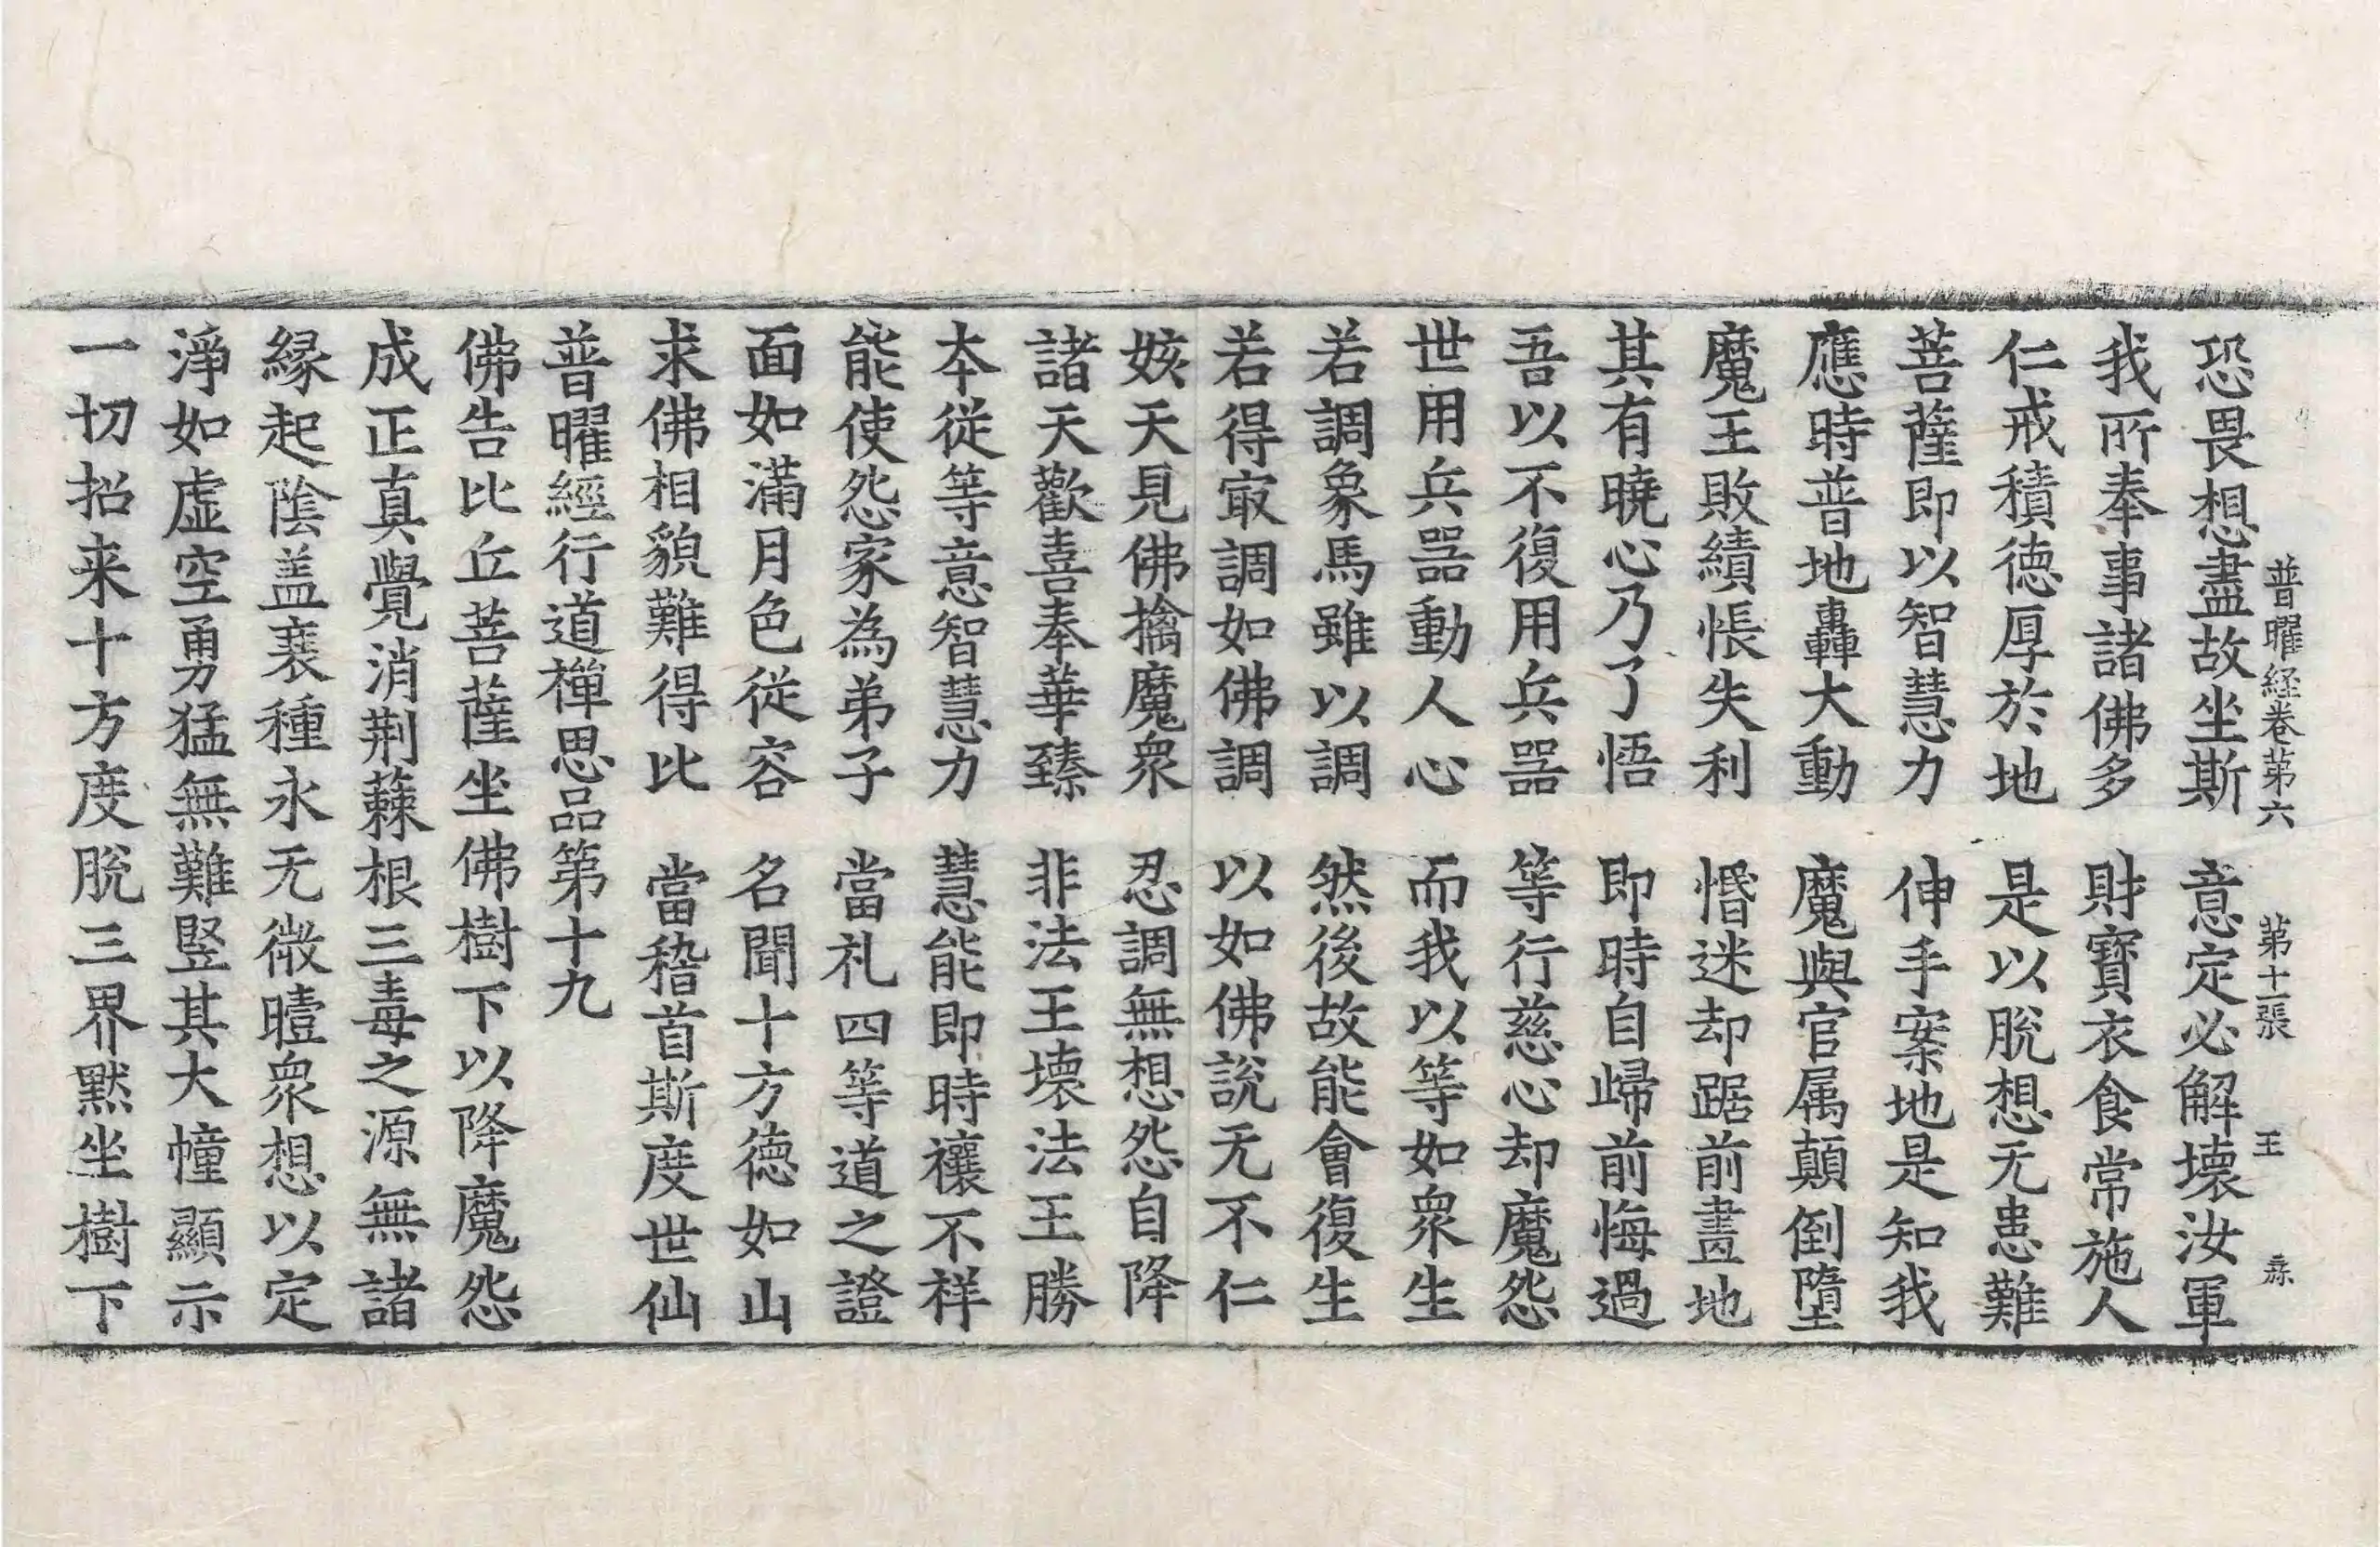 普曜経巻苐六 苐十一張 王
恐畏想盡故坐斯 意定必解壞汝軍
我所奉事諸佛多 財寶衣食常施人
仁戒積德厚於地 是以脫想无患難
菩薩即以智慧力 伸手案地是知我
應時普地轟大動 魔與官属顛倒墮
魔王敗績悵失利 惛迷却踞前畫地
其有曉心乃了悟 即時自歸前悔過
吾以不復用兵器 等行慈心却魔怨
世用兵器動人心 而我以等如衆生
若調象馬雖以調 然後故能會復生
若得㝡調如佛調 以如佛說无不仁
姟天見佛擒魔衆 忍調無想怨自降
諸天歡喜奉華臻 非法王壞法王勝
本從等意智慧力 慧能即時禳不祥
能使怨家為弟子 當礼四等道之證
面如滿月色從容 名聞十方德如山
求佛相貌難得比 當稽首斯度世仙
普曜經行道禪思品第十九
佛告比丘菩薩坐佛樹下以降魔怨
成正真覺消荆蕀根三毒之源無諸
緣起陰盖衰種永无微曀衆想以定
淨如虛空勇猛無難竪其大幢顯示
一切招来十方度脫三界黙坐樹下